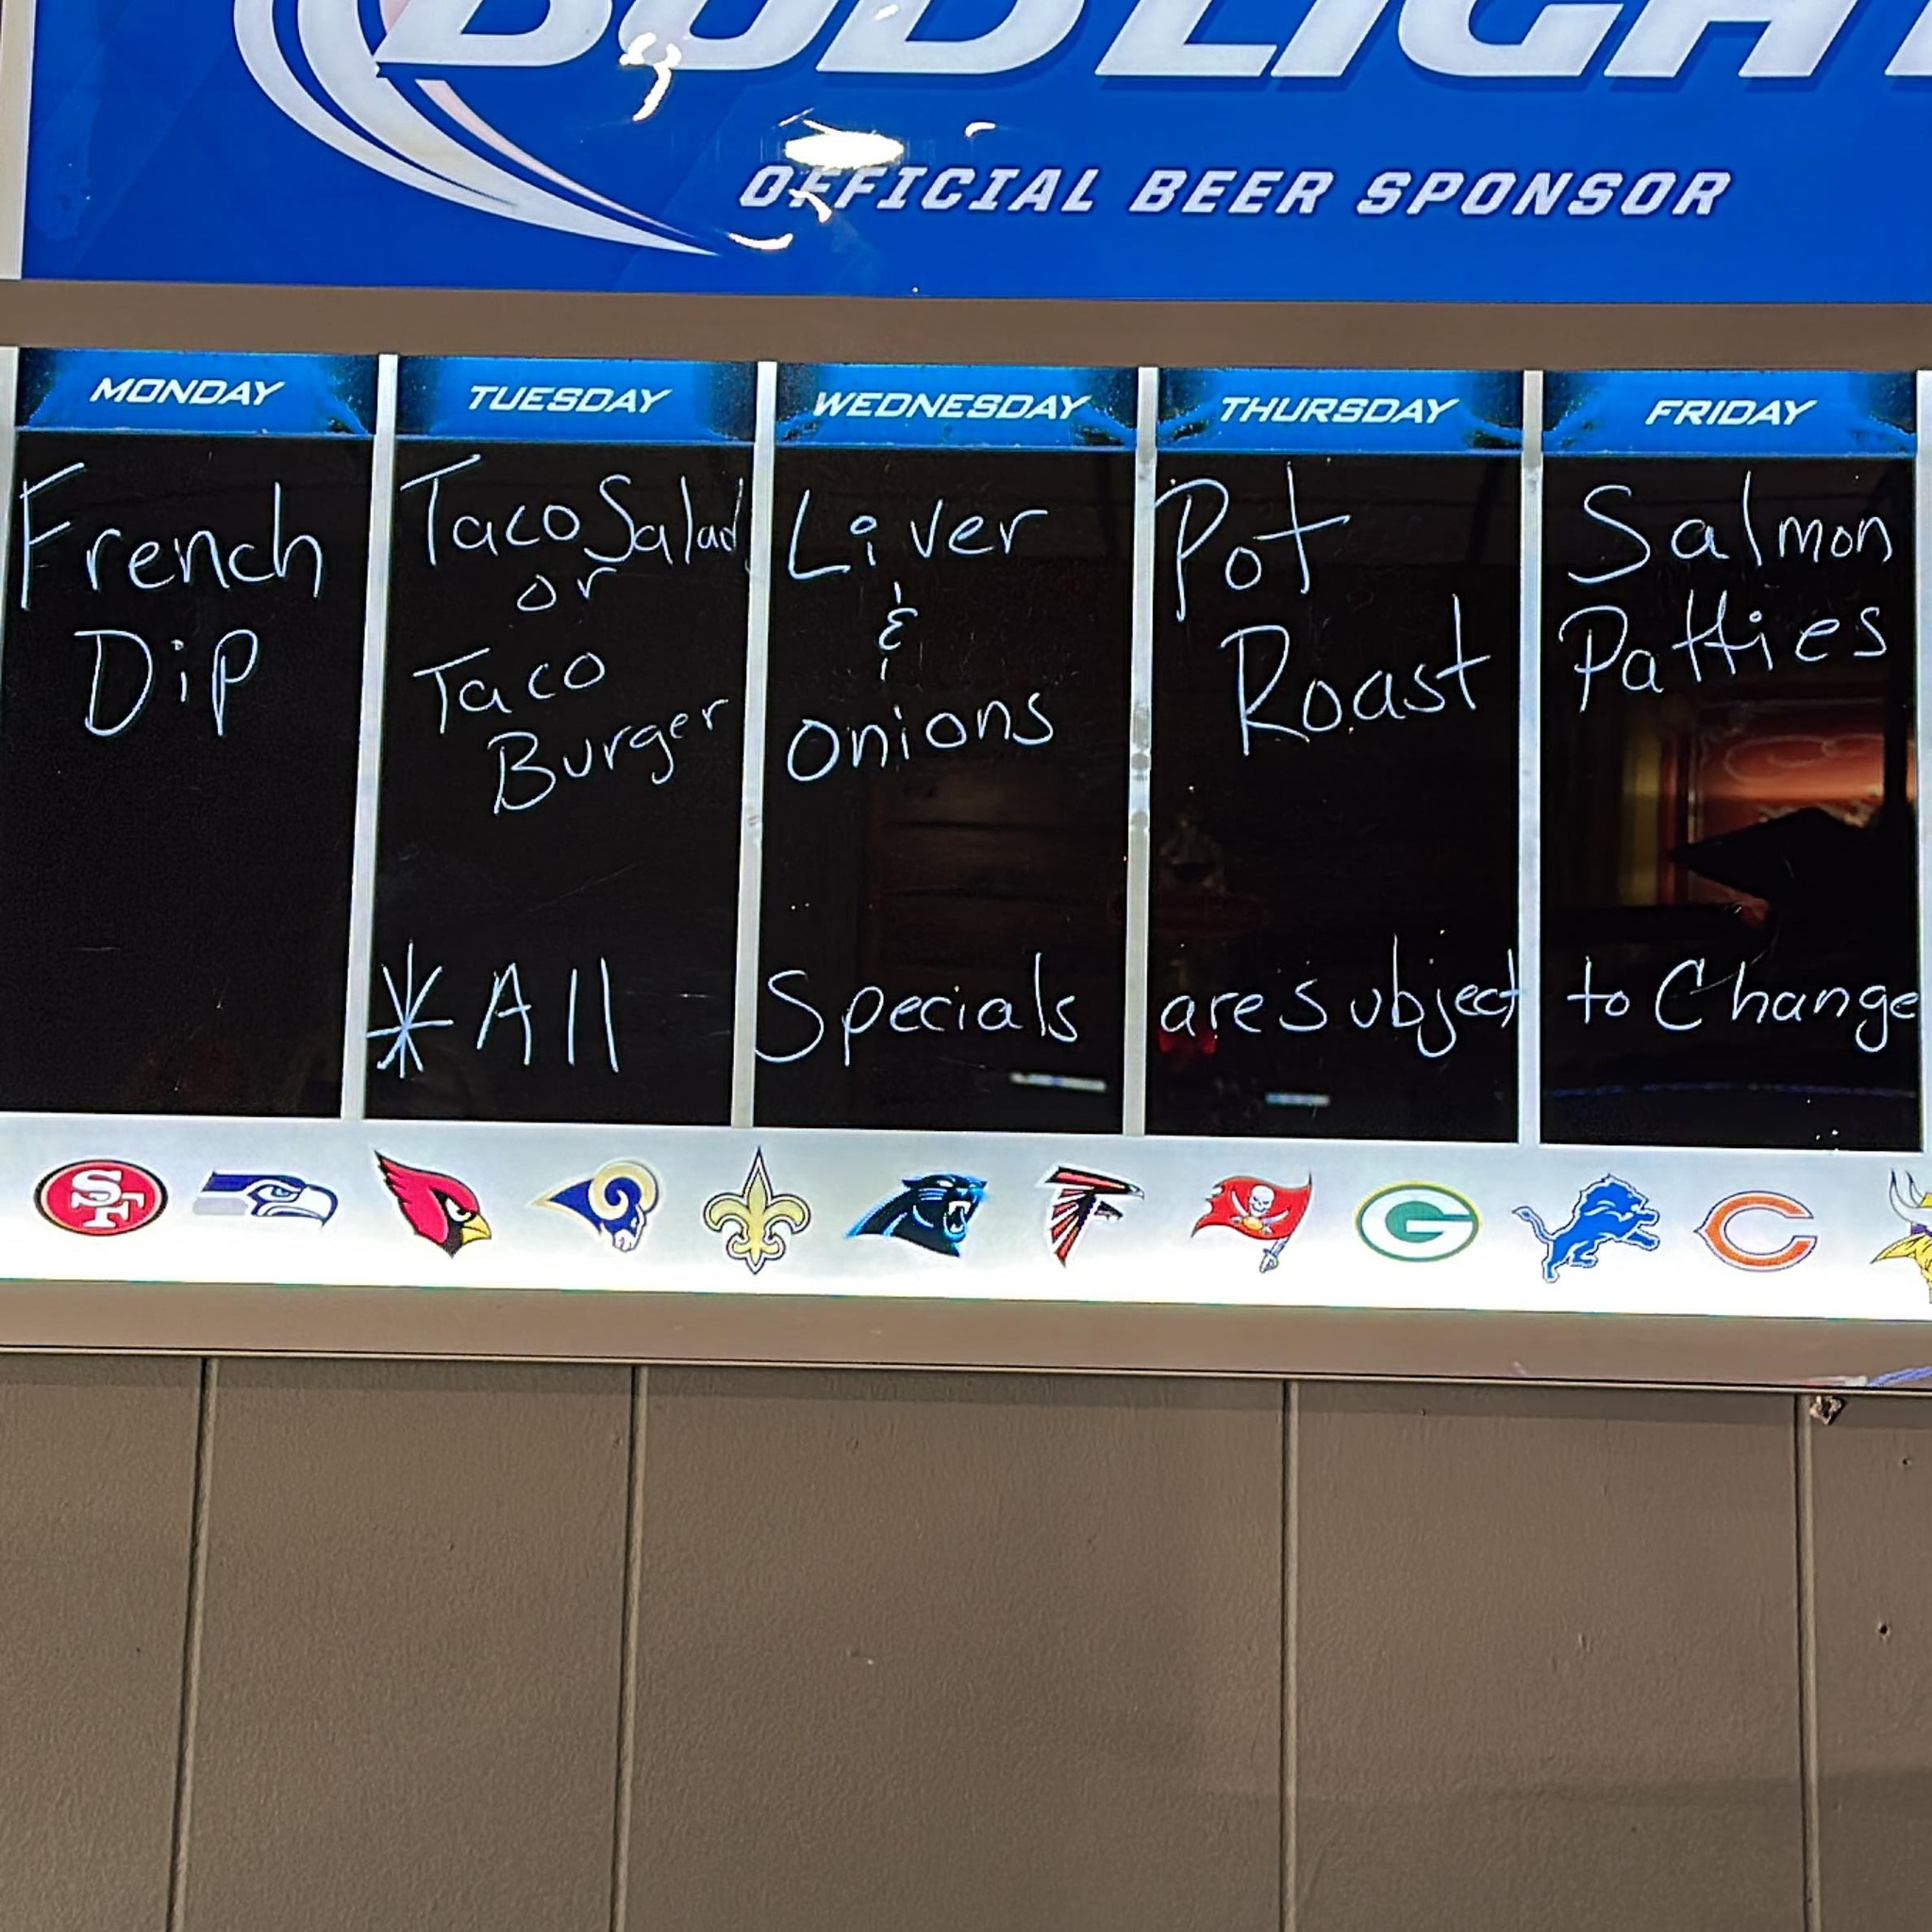 BUD LIGHT
OFFICIAL BEER SPONSOR
MONDAY TUESDAY WEDNESDAY THURSDAY FRIDAY
French
Dip
Taco Salad
or
Taco
Burger
Liver
&
onions
Pot
Roast
Salmon
Patties
*All Specials are subject to Change
SF
G
C